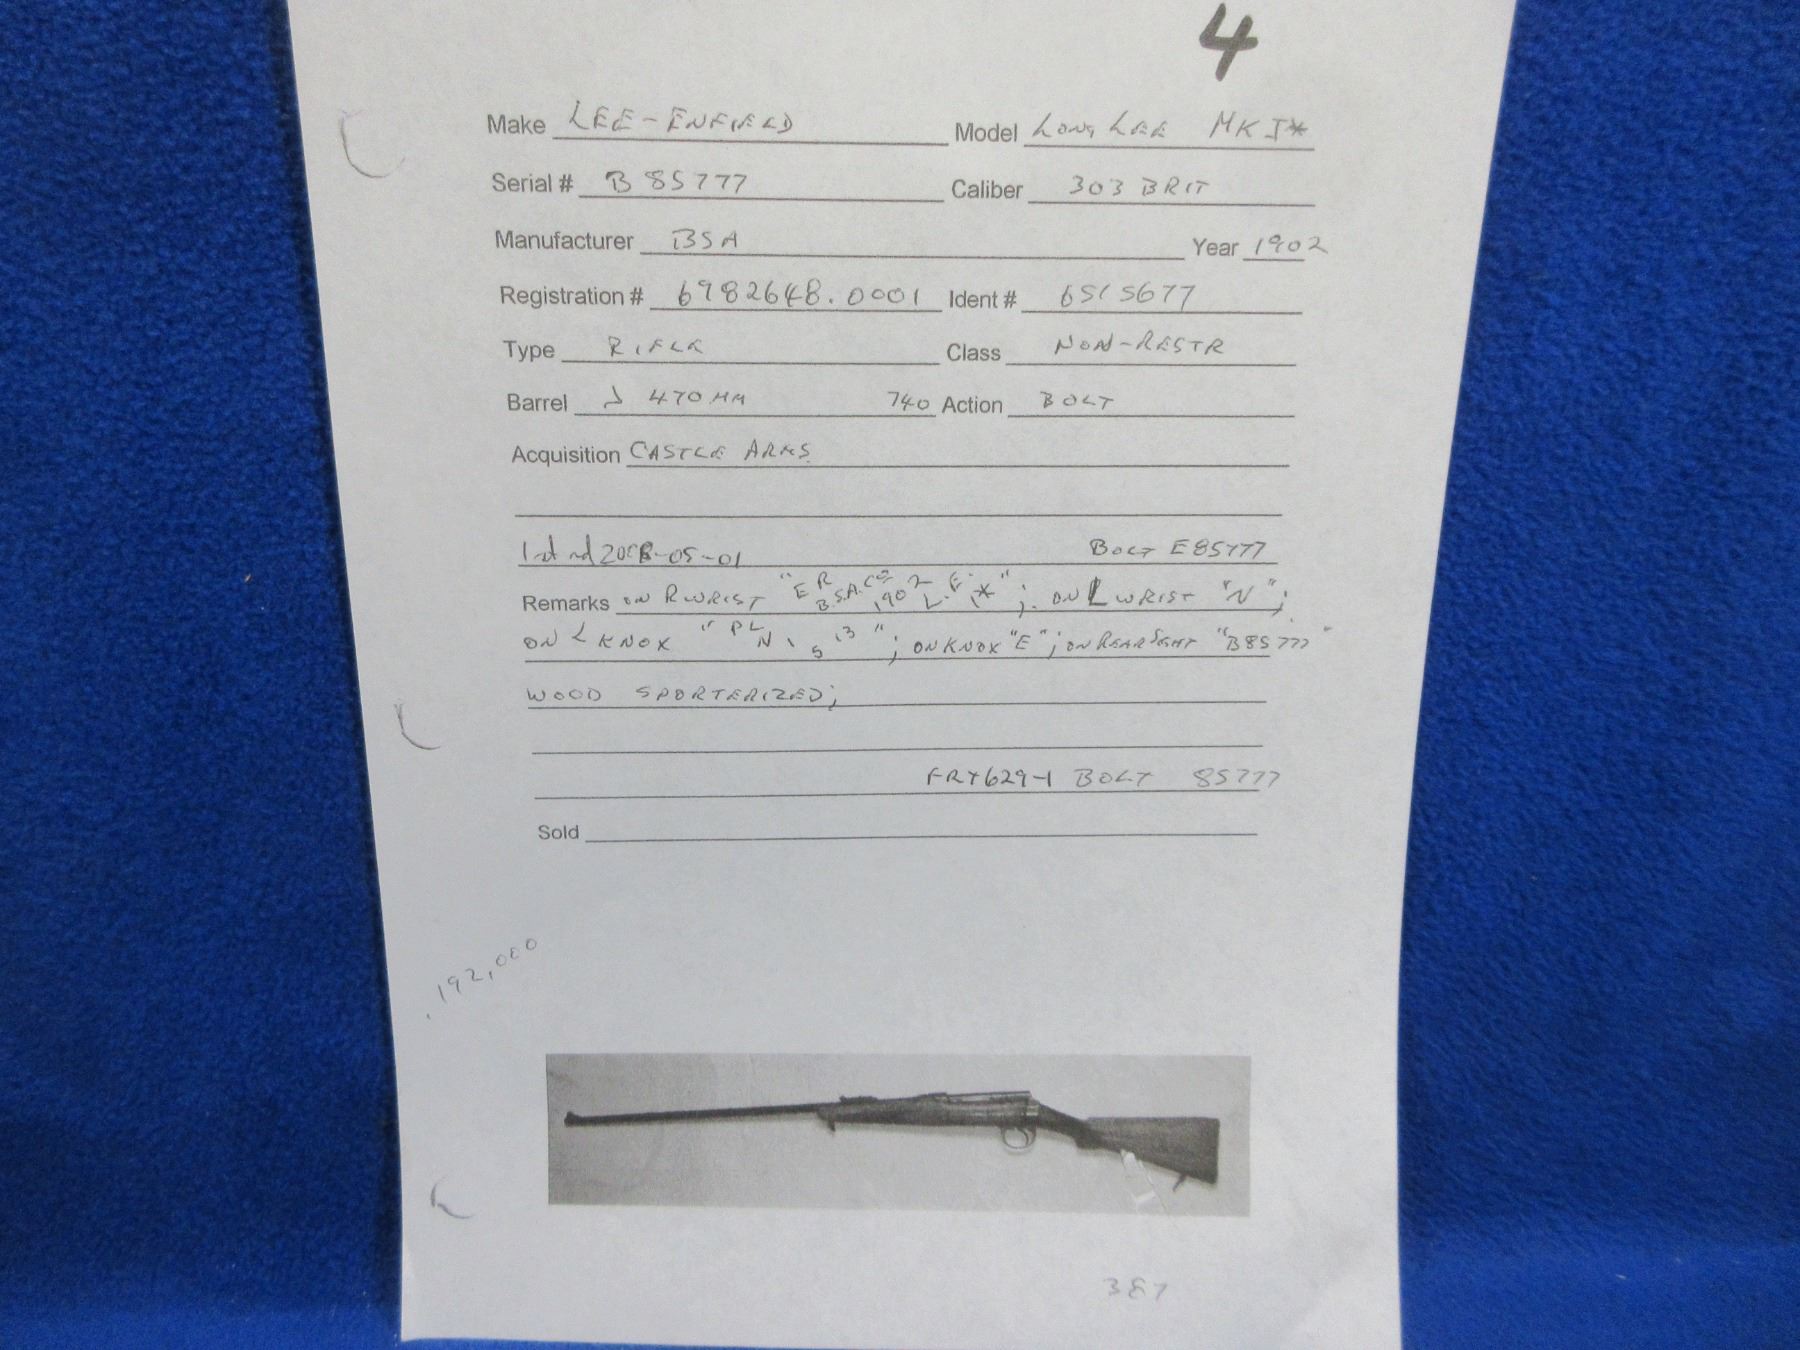 4
Make LEE-ENFIELD Model LONG LEE MK I*
Serial # B 85777 Caliber 303 BRIT
Manufacturer BSA Year 1902
Registration # 6982648.0001 Ident # 6515677
Type RIFLE Class NON-RESTR
Barrel 470 MM 740 Action BOLT
Acquisition CASTLE ARMS
-05-01 BOLT E85777
Remarks ON R WRIST "E R B.S.A. Co 1902 L.E. I*"; ON L WRIST "N";
ON L KNOX "PL N 5 13"; ON KNOX "E"; ON REAR SIGHT "B85777"
WOOD SPORTERIZED;
FRT 629-1 BOLT 85777
Sold
192,000
387